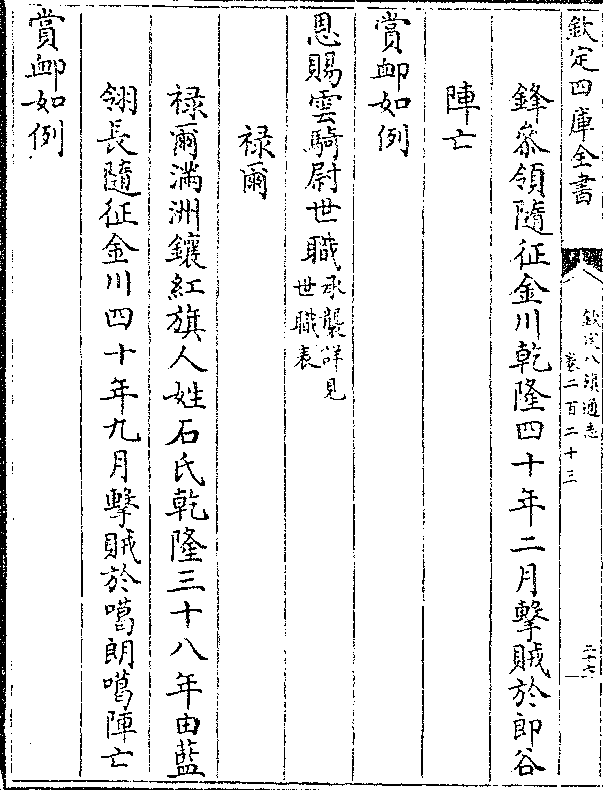 欽定四庫全書
欽定八旗通志
卷二百二十三
二十六
鋒叅領隨征金川乾隆四十年二月擊賊於郎谷
陣亡
賞䘏如例
恩賜雲騎尉世職承襲詳見
世職表
禄爾
禄爾滿洲鑲紅旗人姓石氏乾隆三十八年由藍
翎長隨征金川四十年九月擊賊於噶朗噶陣亡
賞䘏如例